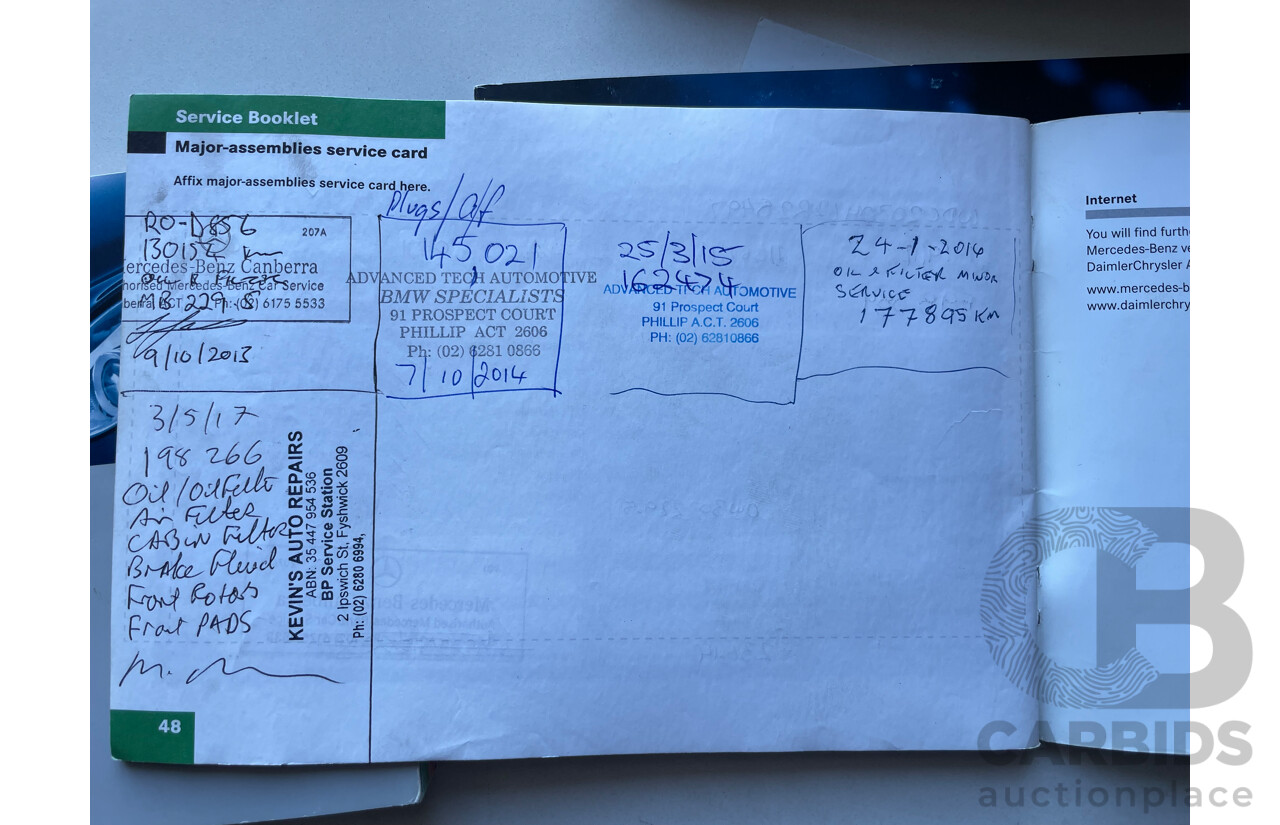 Service Booklet
Major-assemblies service card
Affix major-assemblies service card here.
207A
130152 km
ercedes-Benz Canberra
horised Mercedes-Benz Car Service
berra ACT Ph: (02) 6175 5533
MB 229.5
9/10/2013
Plugs/O/f
145,021
ADVANCED TECH AUTOMOTIVE
BMW SPECIALISTS
91 PROSPECT COURT
PHILLIP ACT 2606
Ph: (02) 6281 0866
7/10/2014
25/3/15
162474
ADVANCED TECH AUTOMOTIVE
91 Prospect Court
PHILLIP A.C.T. 2606
PH: (02) 62810866
24-1-2016
OIL & FILTER MINOR
SERVICE
177895 KM
3/5/17
198 266
Oil/Oil Filter
Air Filter
CABIN Filter
Brake Fluid
Front Rotors
Front PADS
KEVIN'S AUTO REPAIRS
ABN: 35 447 954 536
BP Service Station
2 Ipswich St, Fyshwick 2609
Ph: (02) 6280 6994,
48
Internet
You will find furth
Mercedes-Benz ve
DaimlerChrysler A
www.mercedes-b
www.daimlerchry
CARBIDS
auctionplace